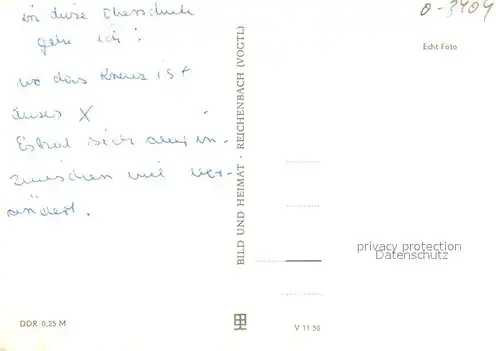 in diese Oberschule
gehe ich!
wo das Kreuz ist
dieses X
Es hat sich aber in-
zwischen viel ver-
ändert.
0-3404
Echt Foto
BILD UND HEIMAT · REICHENBACH (VOGTL)
privacy protection
Datenschutz
DDR 0,25 M
V 11 50